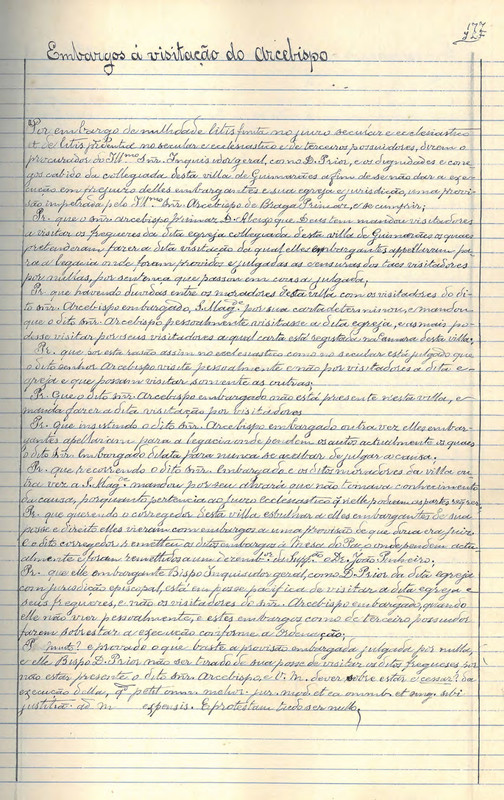 177
Embargos á visitação do Arcebispo
Por embargo de nullidade litisfinita no juizo secular e ecclesiastico
et de litis pendentia no secular e ecclesiastico e de terceiros possuidores, dizem o
procurador do Illmo Snr. Inquisidor geral, como D. Prior, e os dignidades e cone-
gos cabido da collegiada desta villa de Guimarães afim de se não dar a exe-
cução em prejuizo delles embargantes e sua egreja e jurisdição, uma provi-
são impetrada pelo Illmo Snr. Arcebispo de Braga Primaz, e se cumprir;
Pr. que o snr. arcebispo primaz que Deus tem mandou visitadores
a visitar os freguezes da dita egreja collegiada desta villa de Guimarães os quaes
pretenderam fazer a dita visitação da qual elles embargantes appellaram pa-
ra a legacia onde foram providos e julgadas as censuras dos taes visitadores
por nullas, por sentença que passou em causa julgada;
Pr. que havendo duvidas entre os moradores desta villa com os visitadores do di-
to snr. Arcebispo embargado, S. Mage. por sua carta determinou, e mandou
que o dito Snr. Arcebispo pessoalmente visitasse a dita egreja, e as mais po-
desse visitar por seus visitadores a qual carta está registada na Camara desta villa;
Pr. que por esta rasão assim no ecclesiastico como no secular está julgado que
o dito senhor Arcebispo visite pessoalmente e não por visitadores a dita e-
greja e que possam visitar somente as outras;
Pr. Que o dito snr. Arcebispo embargado não está presente nesta villa, e
manda fazer a dita visitação por visitadores
Pr. que insistindo o dito Snr. Arcebispo embargado outra vez elles embar-
gantes apellariam para a legacia onde pendem os autos actualmente os quaes
o dito Snr. Embargado dilata para nunca se acabar de julgar a causa.
Pr. que recorrendo o dito snr. Embargado e os ditos moradores da villa ou-
tra vez a S. Mage. mandou por seu alvará que não tomava conhecimento
da causa, porquanto pertencia ao juizo ecclesiastico q' nelle podiam as partes
Pr. que querendo o corregedor desta villa esbulhar a elles embargantes de sua
posse e direito elles vieram com embargos a uma provisão de que dizia era juiz
e o dito corregedor remetteu os ditos embargos á Mesa do Paço onde pendem actu-
almente e foram remettidos a um dezembr. do Dr. João Pinheiro;
Pr. que elle embargante Bispo Inquisidor geral, como D. Prior da dita egreja
com jurisdição episcopal, está em posse pacifica de visitar a dita egreja e
seus freguezes, e não os visitadores do snr. Arcebispo embargado, quando
elle não vier pessoalmente, e estes embargos como de terceiro possuidor
fazem sobrestar a execução conforme a Ordenação;
P muto? e provado o que baste a provisão embargada julgada por nulla,
e elle Bispo D. Prior não ser tirado de sua posse de visitar os ditos freguezes por
não estar presente o dito snr. Arcebispo, e V. M. dever sobre estar e cessar? da
execução della, petit omni melior. jur. modo et ca omnib. et sing. sibi
justitia ad m expensis. E protestam tudo ser nullo,